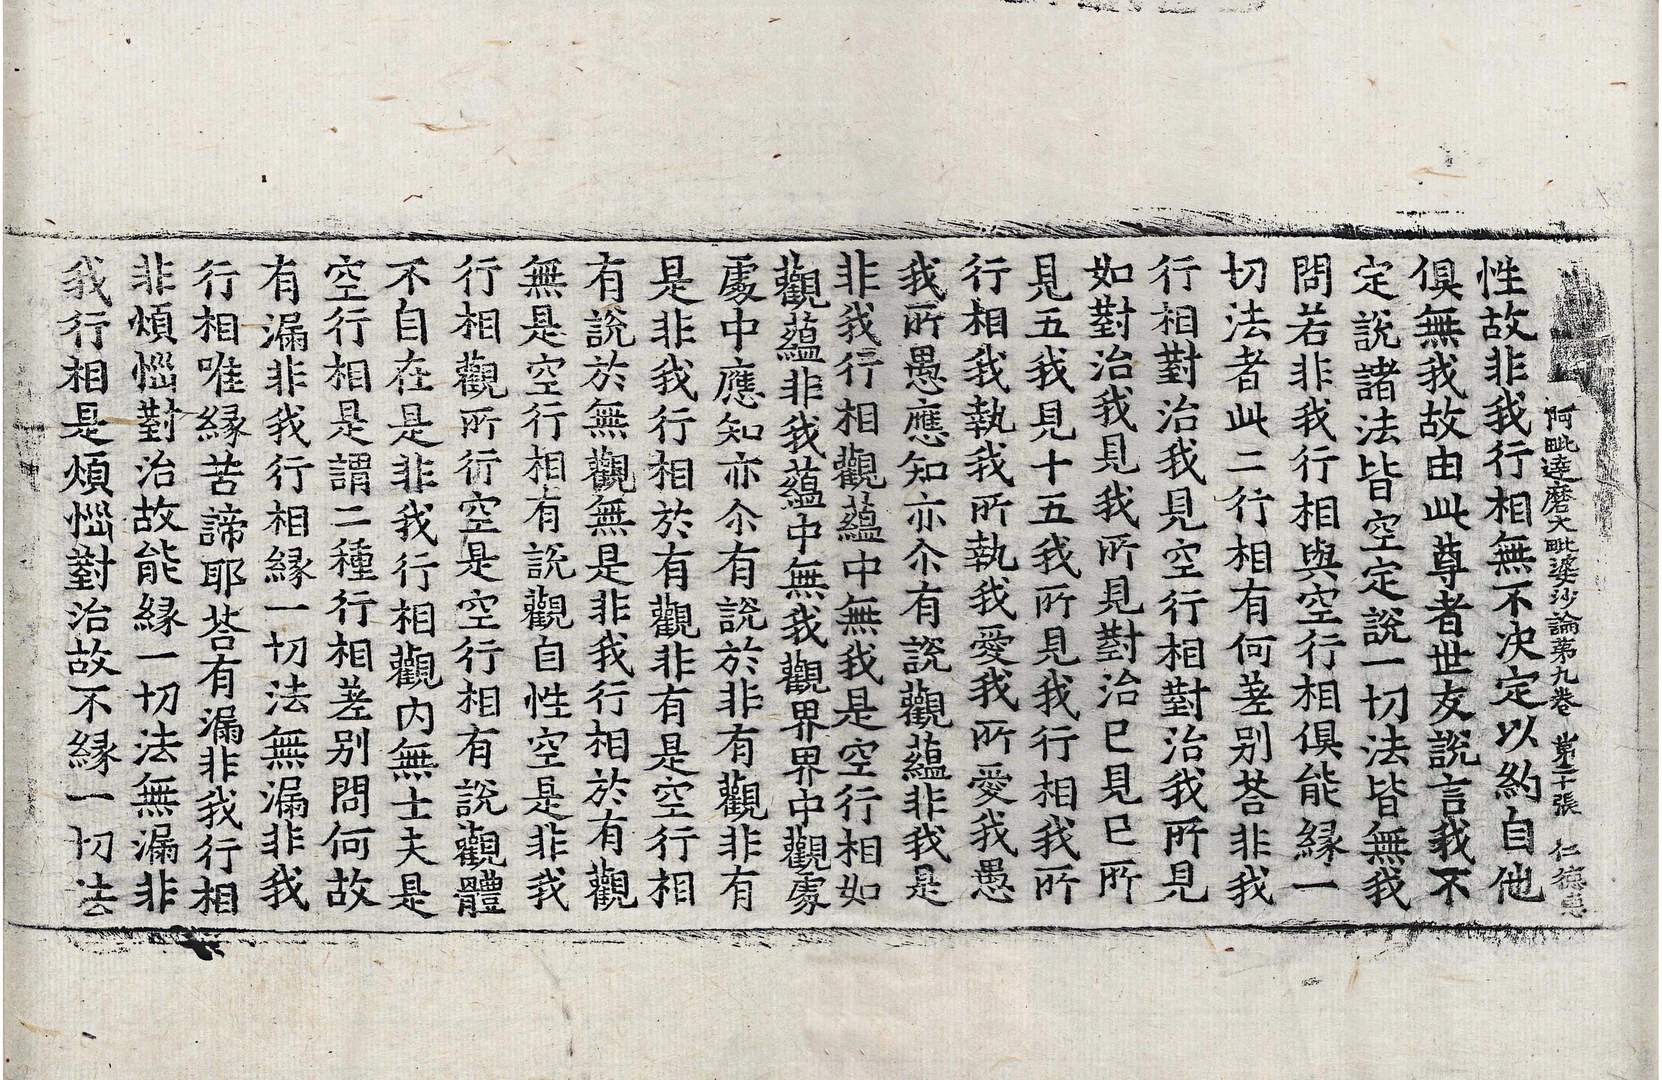 阿毗達磨大毗婆沙論第九卷 第二十張 仁德惠
性故非我行相無不決定以約自他
俱無我故由此尊者世友說言我不
定說諸法皆空定說一切法皆無我
問若非我行相與空行相俱能緣一
切法者此二行相有何差別荅非我
行相對治我見空行相對治我所見
如對治我見我所見對治已見已所
見五我見十五我所見我行相我所
行相我執我所執我愛我所愛我愚
我所愚應知亦尒有說觀蘊非我是
非我行相觀蘊中無我是空行相如
觀蘊非我蘊中無我觀界界中觀處
處中應知亦尒有說於非有觀非有
是非我行相於有觀非有是空行相
有說於無觀無是非我行相於有觀
無是空行相有說觀自性空是非我
行相觀所行空是空行相有說觀體
不自在是非我行相觀內無士夫是
空行相是謂二種行相差別問何故
有漏非我行相緣一切法無漏非我
行相唯緣苦諦耶荅有漏非我行相
非煩惱對治故能緣一切法無漏非
我行相是煩惱對治故不緣一切法